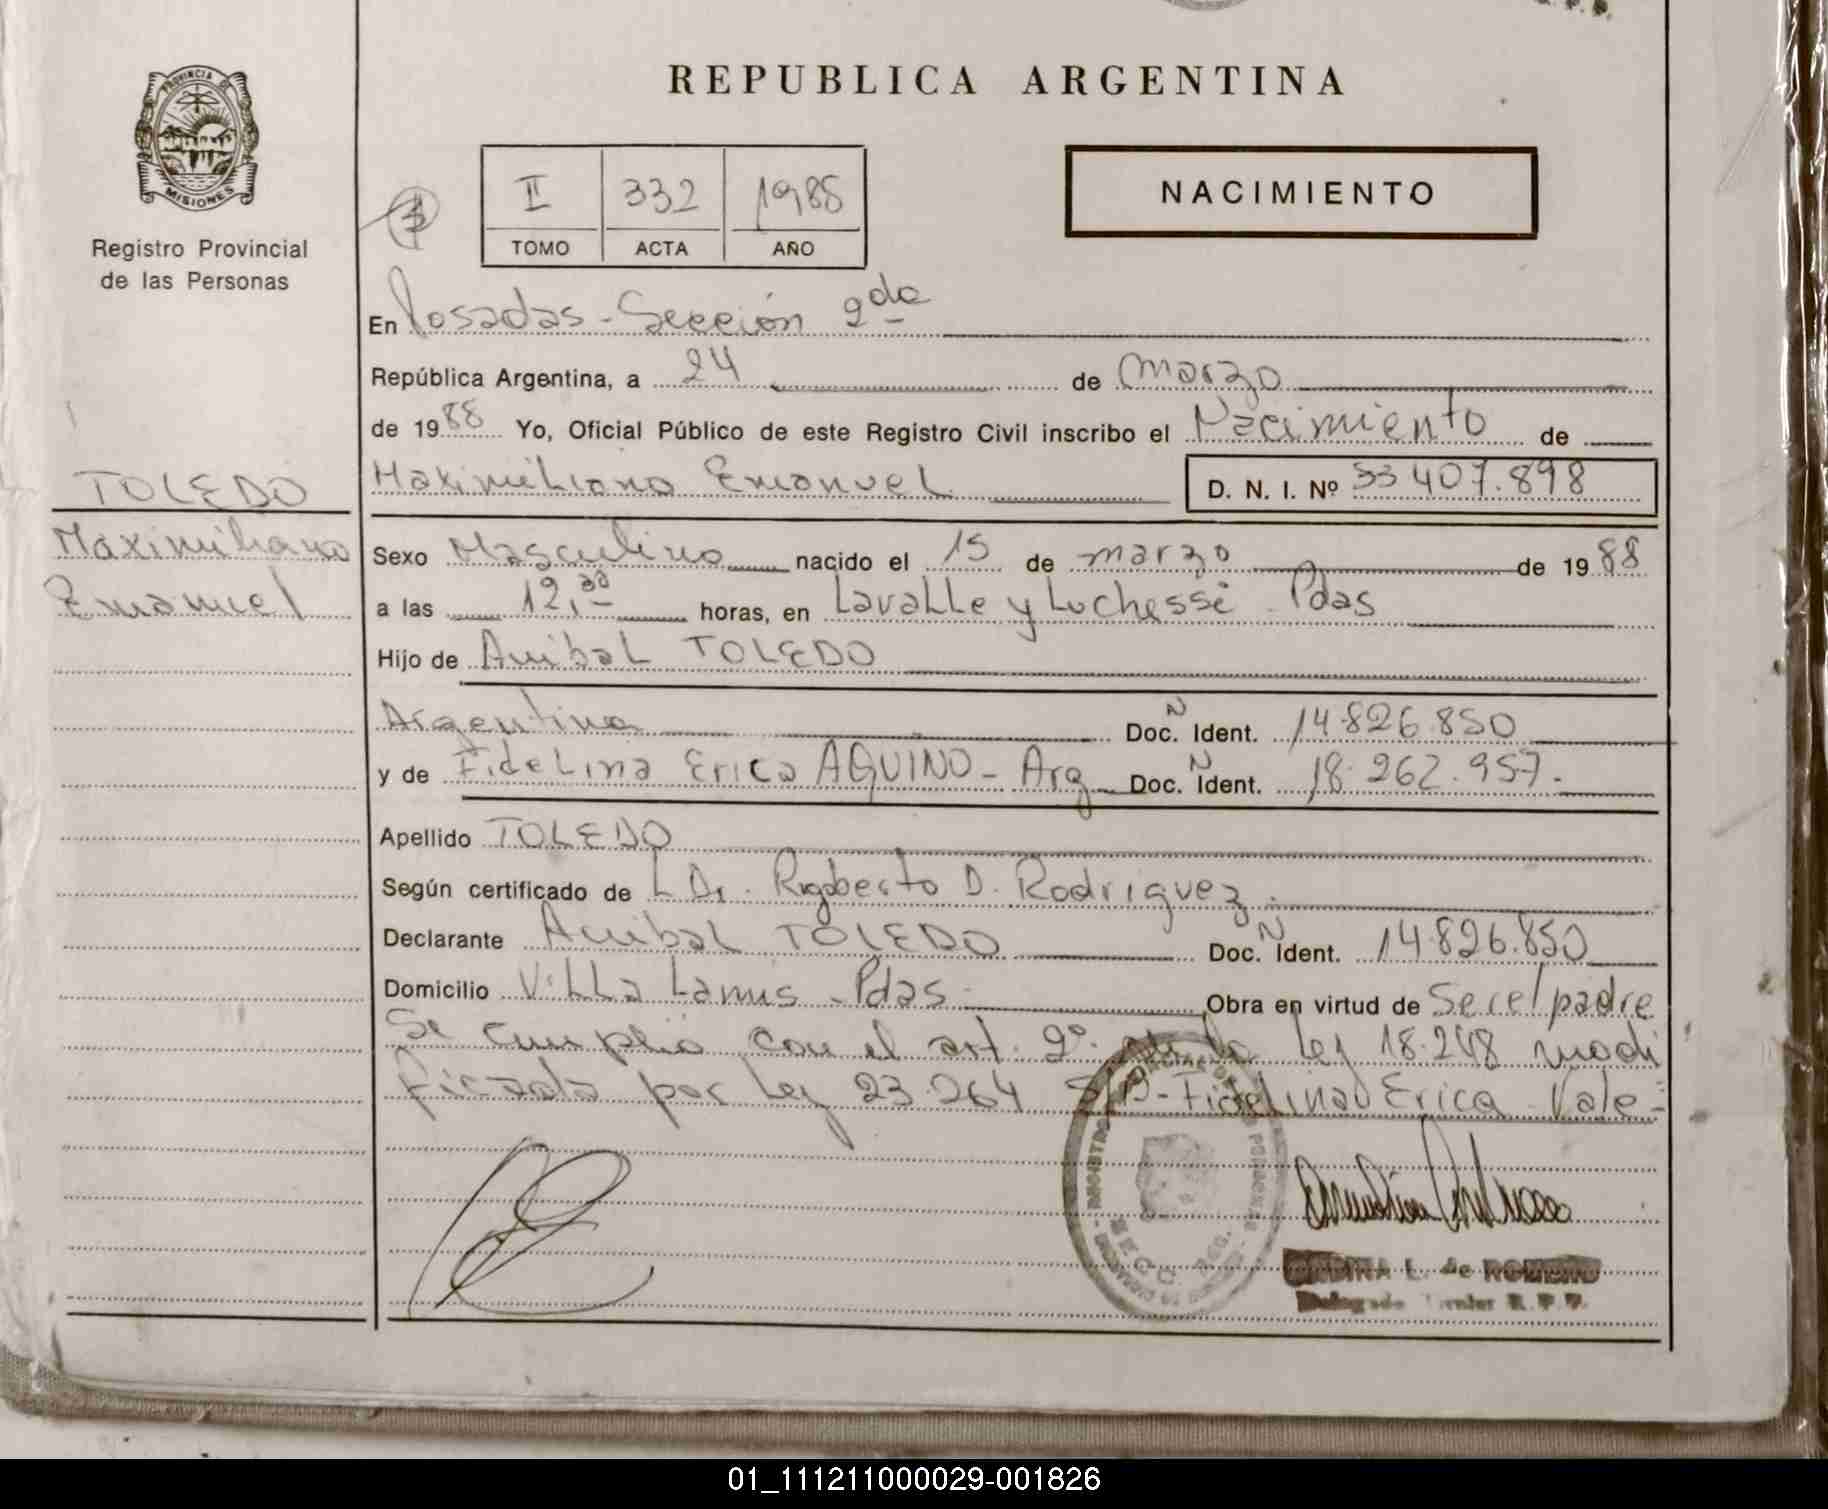 REPUBLICA ARGENTINA
PROVINCIA DE
MISIONES
Registro Provincial
de las Personas
II 332 1988
TOMO ACTA AÑO
NACIMIENTO
En Posadas - Sección 2da
República Argentina, a 24 de marzo
de 1988 Yo, Oficial Público de este Registro Civil inscribo el Nacimiento de
Maximiliano Emanuel D. N. I. Nº 33 407.898
TOLEDO
Maximiliano
Emanuel
Sexo Masculino nacido el 15 de marzo de 1988
a las 12,30 horas, en Lavalle y Luchessi - Pdas
Hijo de Anibal TOLEDO
Argentina Doc. N Ident. 14.826.850
y de Fidelina Erica AQUINO - Arg Doc. N Ident. 18.262.957.
Apellido TOLEDO
Según certificado de L Dr. Rigoberto D. Rodriguez.
Declarante Anibal TOLEDO Doc. N Ident. 14.826.850
Domicilio Villa Lanus - Pdas - Obra en virtud de Ser el padre
Se cumplió con el art. 2º. de la Ley 18.248 modi
ficada por Ley 23.264 S/B - Fidelina Erica Vale -
SECC. REG.
L. de ROMERO
Delegada Titular R. P. P.
01_111211000029-001826